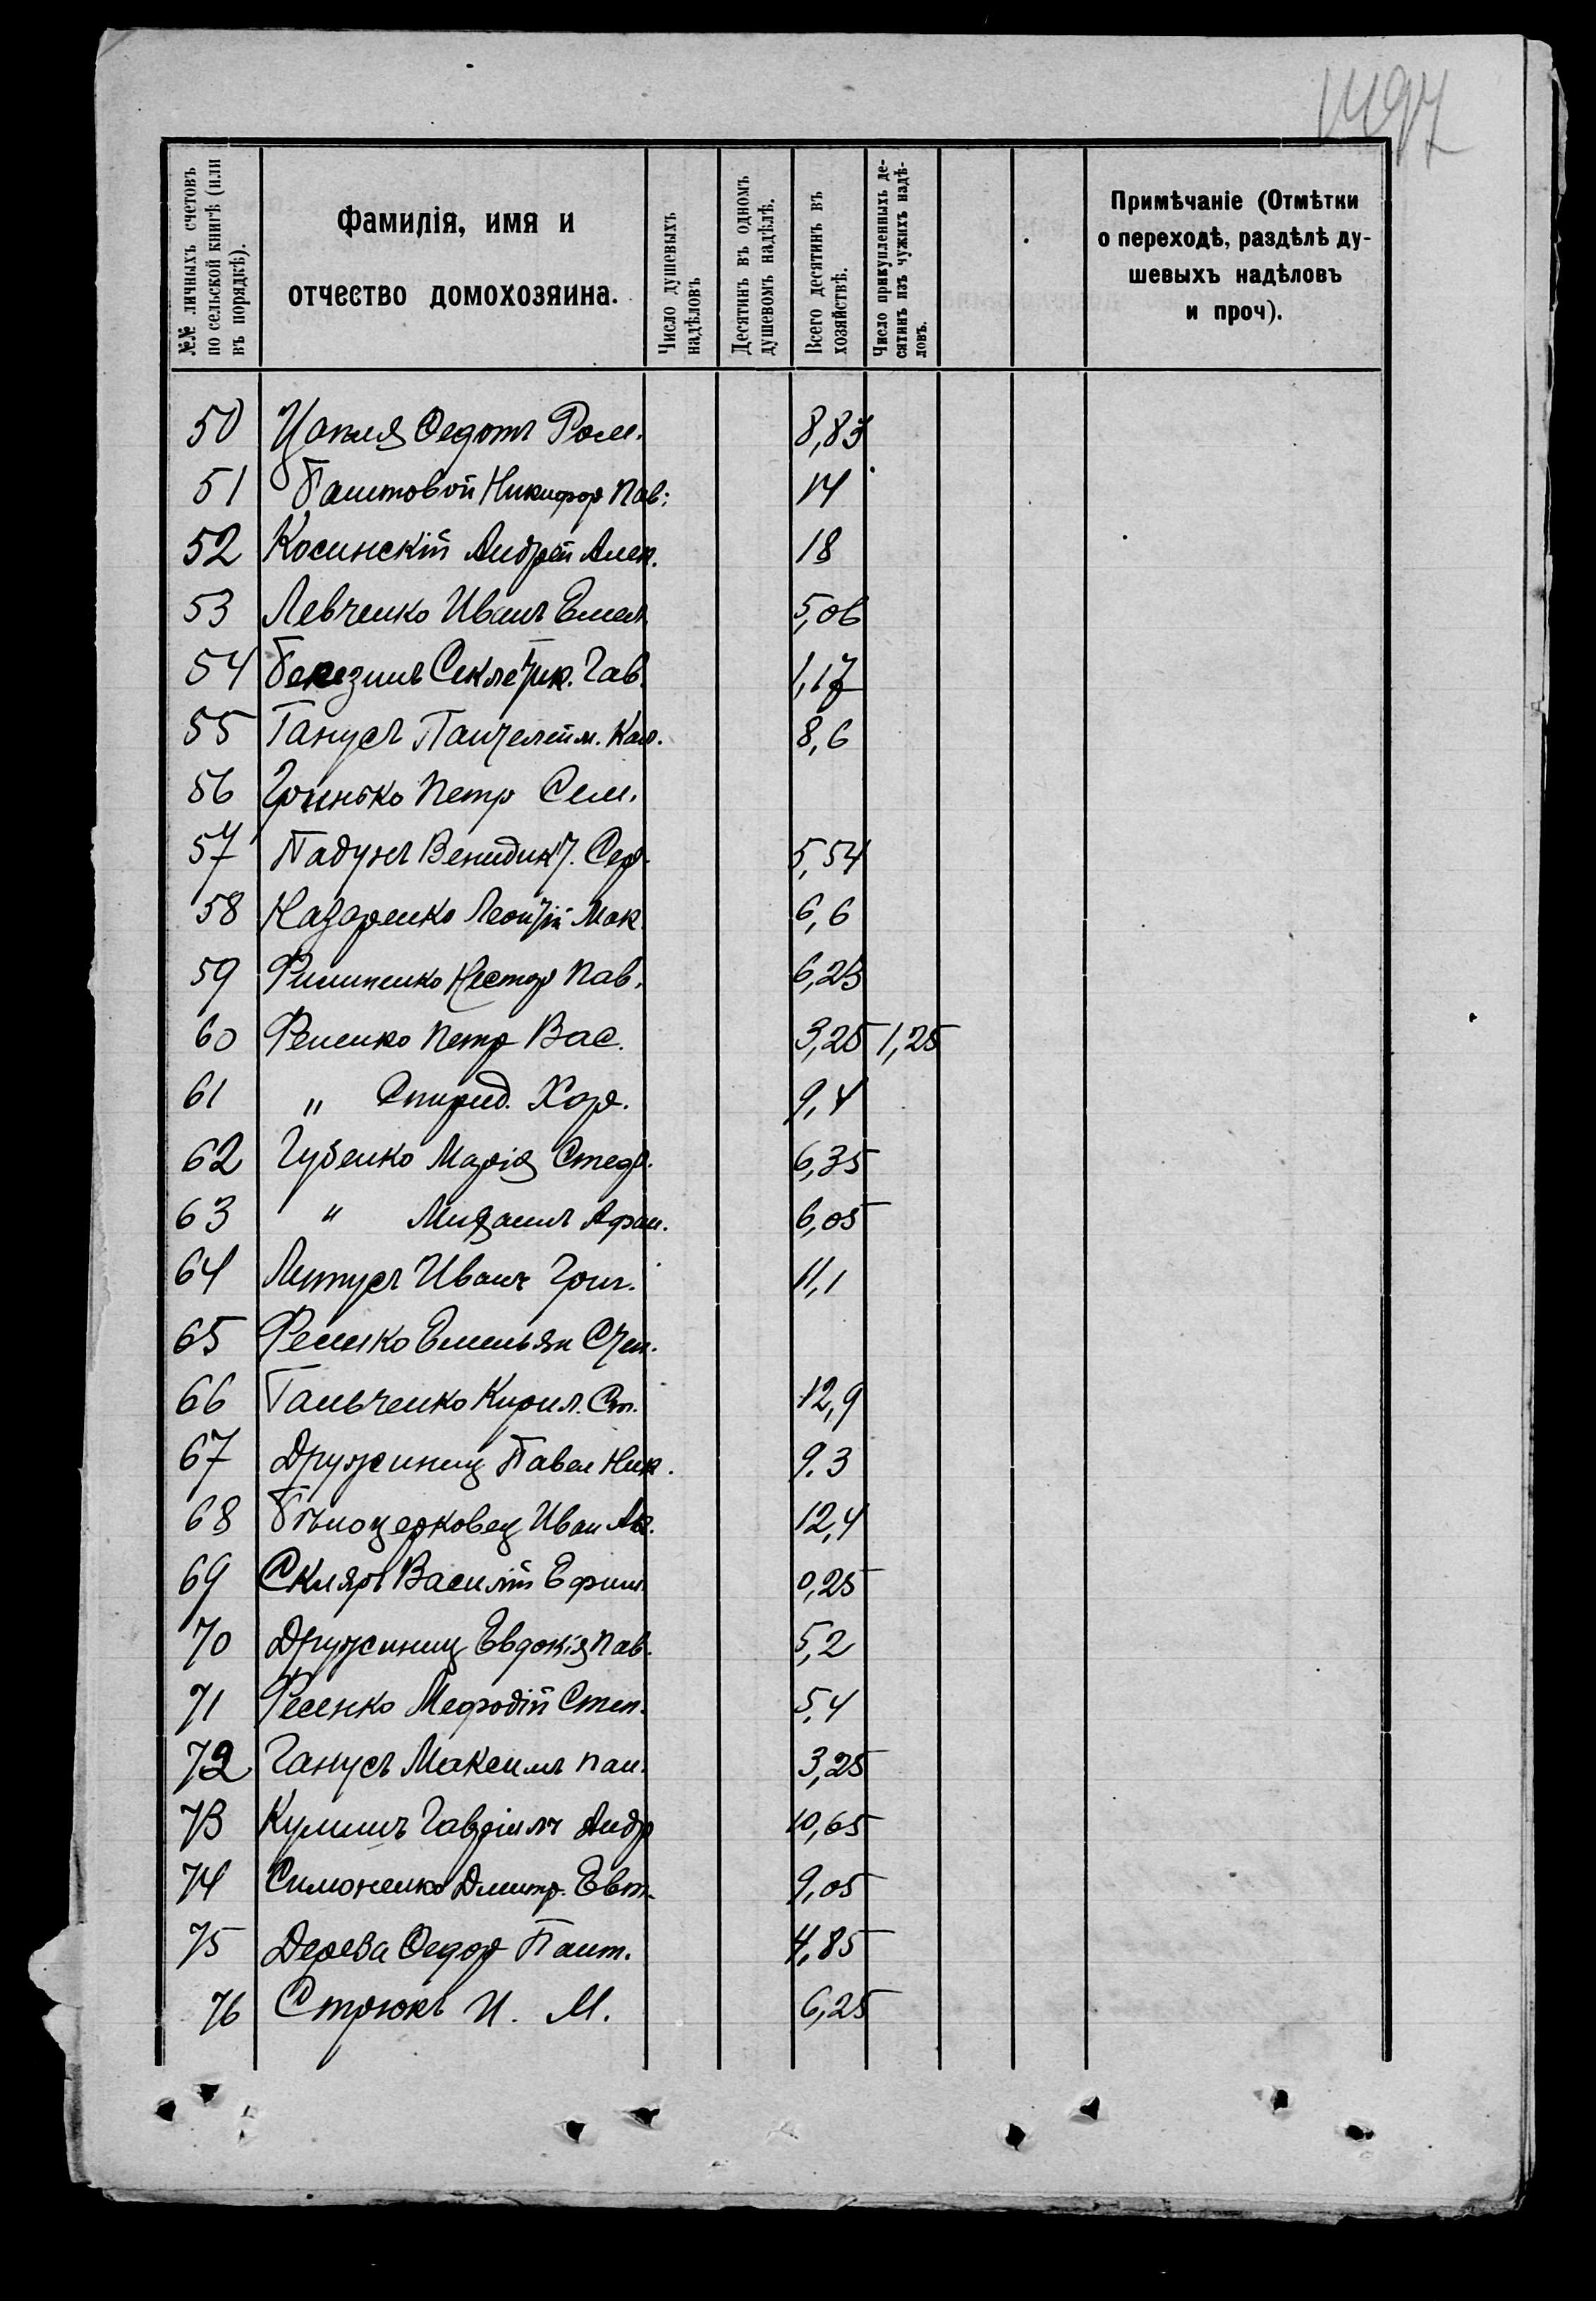 1497
№№ личныхъ счетовъ по сельской книгѣ (или въ порядкѣ).
Фамилія, имя и отчество домохозяина.
Число душевыхъ надѣловъ
Десятинъ въ одномъ душевомъ надѣлѣ.
Всего десятинъ въ хозяйствѣ.
Число прикупленныхъ десятинъ изъ чужихъ надѣловъ.
Примѣчаніе (Отмѣтки о переходѣ, раздѣлѣ душевыхъ надѣловъ и проч).
50 Цапля Федотъ Ром. 8,83
51 Баштовой Никифор Пав: 14
52 Косинскій Андрей Алек. 18
53 Левченко Иванъ Емел. 5,06
54 Гав. 1,17
55 Ганусъ Пантелейм. 8,6
56 Гринько Петр Сем.
57 Падунъ Венидикт. Сер. 5,54
58 Назаренко Леонтій Мак. 6,6
59 Филипенко Нестор Пав. 6,25
60 Фененко Петр Вас. 3,25 1,25
61 „ Спирид. Хар. 9,4
62 Губенко Марія Стеф. 6,35
63 „ Михаилъ Афан. 6,05
64 Литусъ Иванъ Григ. 11,1
65 Фесенко Емельян Степ.
66 Гальченко Кирил. Ст. 12,9
67 Дружинец Павел Ник. 9.3
68 Бѣлоцерковец Иван 12,4
69 Скляръ Василій Ефим. 0,25
70 Дружинец Евдокія Пав. 5,2
71 Фесенко Мефодій Степ. 5,4
72 Ганусъ Максимъ Пан. 3,25
73 Кулишъ Гавріилъ Андр 10,65
74 Симоненко Дмитр. Евт. 9,05
75 Дерева Федор Пант. 4,85
76 Стрюкъ И. М. 6,25